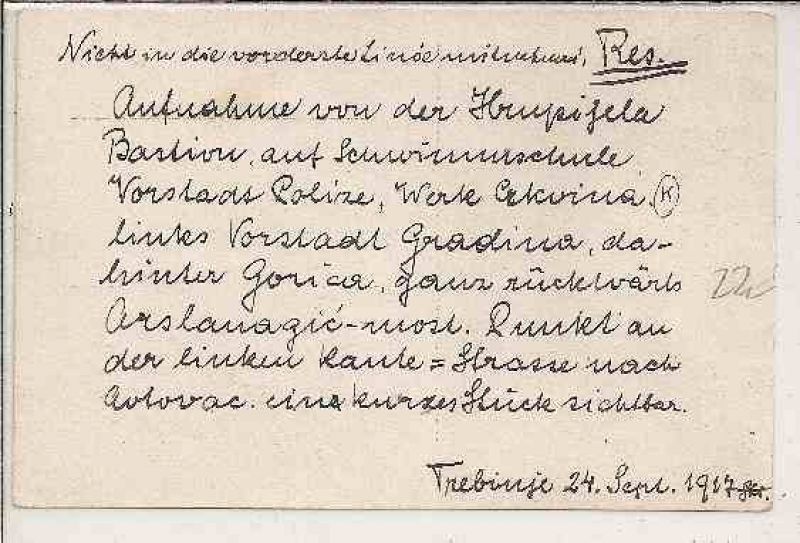 Nicht in die vorderste Linie mitnehmen, Res.
Aufnahme von der Hrupijela
Bastion, auf Schwimmschule,
Vorstadt Police, Werk Crkvina (K)
links Vorstadt Gradina, da-
hinter Gorica, ganz rückwärts
Arslanagić-most. Punkt an
der linken Kante = Strasse nach
Avtovac. eine kurzes Stück sichtbar.
22
Trebinje 24. Sept. 1917